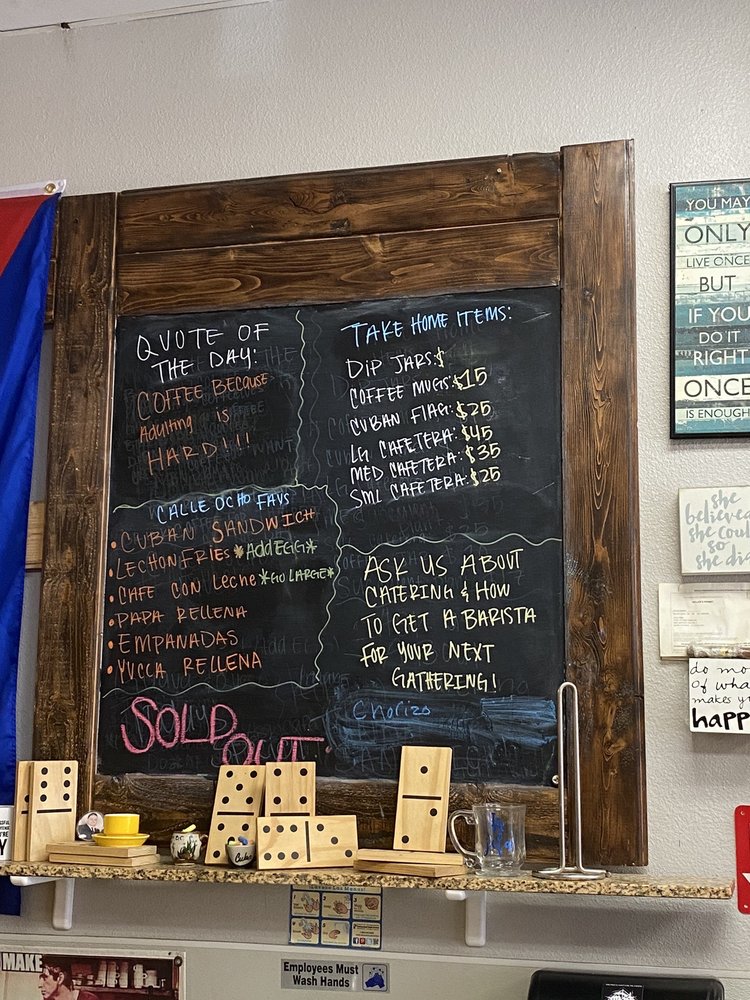 QUOTE OF
THE DAY:
COFFEE BECAUSE
Adulting is
HARD!!!
CALLE OCHO FAVS
• CUBAN SANDWICH
• LECHON FRIES *Add EGG*
• CAFE CON Leche *GO LARGE*
• PAPA RELLENA
• EMPANADAS
• YUCCA RELLENA
SOLD OUT
TAKE HOME ITEMS:
DIP JARS: $
COFFEE MUGS: $15
CUBAN FLAG: $25
LG CAFETERA: $45
MED CAFETERA: $35
SML CAFETERA: $25
ASK US ABOUT
CATERING & HOW
TO GET A BARISTA
FOR YOUR NEXT
GATHERING!
Chorizo
YOU MAY
ONLY
LIVE ONCE
BUT
IF YOU
DO IT
RIGHT
ONCE
IS ENOUGH
she
believed
she could
so
she did
do more
of what
makes you
happy
MAKE
Employees Must
Wash Hands